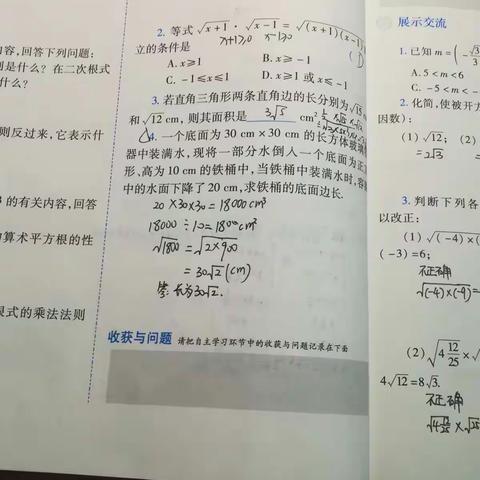 内容,回答下列问题:
是什么?在二次根式
什么?
则反过来,它表示什
的有关内容,回答
算术平方根的性
根式的乘法法则
2. 等式 √(x+1) · √(x-1) = √((x+1)(x-1)
x+1≥0 x-1≥0
立的条件是
A. x≥1 B. x≥-1
C. -1≤x≤1 D. x≥1 或 x≤-1
3. 若直角三角形两条直角边的长分别为 √15
和 √12 cm, 则其面积是 3√5 cm²
4. 一个底面为 30 cm×30 cm 的长方体玻璃
器中装满水,现将一部分水倒入一个底面为正
形、高为 10 cm 的铁桶中,当铁桶中装满水时,容
中的水面下降了 20 cm,求铁桶的底面边长.
20×30×30=18000cm³
18000÷10=1800cm²
√1800=√(2×900)
=30√2(cm)
答:长为30√2.
收获与问题 请把自主学习环节中的收获与问题记录在下面
展示交流
1. 已知 m=(-√3/3
A. 5<m<6
C. -5<m<-
2. 化简,使被开方
因数):
(1) √12; (2)
=2√3
3. 判断下列各
以改正:
(1) √((-4)×(
(-3)=6;
不正确
√((-4)×(-9))=
(2) √(4 12/25) ×√
4√12=8√3.
不正确
√(4 12/25) × √25